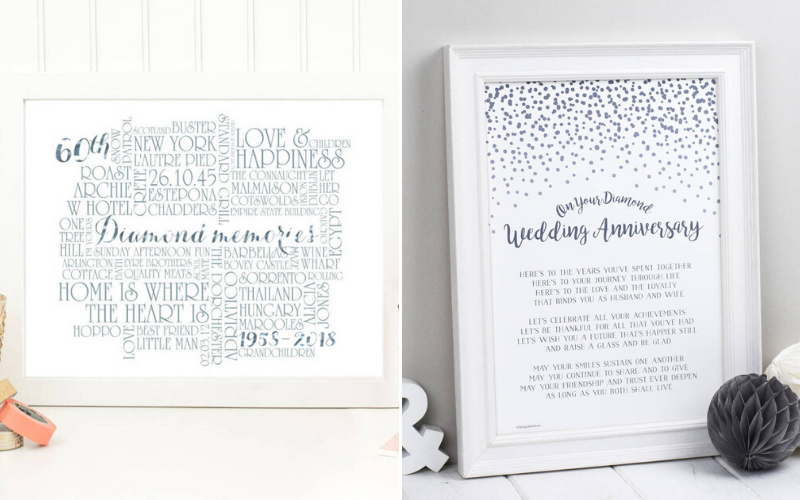 60th
SNOW
PATROL
SCOTLAND BUSTER
NEW YORK
L'AUTRE PIED
CRETE
26.10.45
ESTEPONA
CHADDERS
STANDARD GRILL
LOVE &
CHILDREN
HAPPINESS
THE CONNAUGHT
MALMAISON
COTSWOLDS
EMPIRE STATE BUILDING
DUBLIN
LET
HER
GO
ROAST
ARCHIE
W HOTEL
ONE
TREE
HILL
Diamond memories
EGYPT
SUNDAY AFTERNOON FUN
ARLINGTON
COTTAGE
BATH
EYRE BROTHERS
QUALITY MEATS
HOME IS WHERE
THE HEART IS
HOPPO
LOVE
BEST FRIEND
LITTLE MAN
02.03.12
THE DORCHESTER
BARBELLA
BOVEY CASTLE
SORRENTO
THAILAND
HUNGARY
MAROOLES
WINE
WHARF
ROLLING
JONES
1958-2018
GRANDCHILDREN
On Your Diamond
Wedding Anniversary
HERE'S TO THE YEARS YOU'VE SPENT TOGETHER
HERE'S TO YOUR JOURNEY THROUGH LIFE
HERE'S TO THE LOVE AND THE LOYALTY
THAT BINDS YOU AS HUSBAND AND WIFE
LET'S CELEBRATE ALL YOUR ACHIEVEMENTS
LET'S BE THANKFUL FOR ALL THAT YOU'VE HAD
LET'S WISH YOU A FUTURE THAT'S HAPPIER STILL
AND RAISE A GLASS AND BE GLAD
MAY YOUR SMILES SUSTAIN ONE ANOTHER
MAY YOU CONTINUE TO SHARE AND TO GIVE
MAY YOUR FRIENDSHIP AND TRUST EVER DEEPEN
AS LONG AS YOU BOTH SHALL LIVE
&